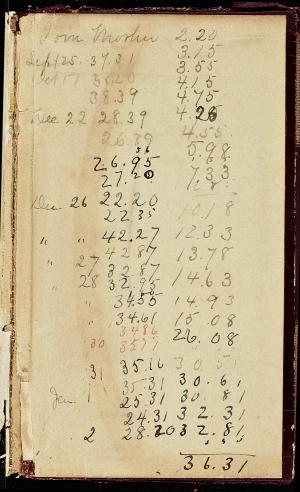 Tom 2.20
Sept 25. 37.31 3.15
3.55
Oct 17 38.20 4.15
38.39 4.75
Dec 22 28.39 4.25
26.39 4.55
36
26.95 5.98
27.20 7.33
Dec 26 22.20
22 35 10.18
" " 42.27 12.33
27 42 87 13.78
28 32 87
32.95 14.63
" 34.55 14.93
" 34.61 15.08
34 86 26.08
30 35 11
31 35.16 30.51
" 35.31 30.61
Jan 1 25.31 30.81
24.31 32.31
" 2 28.20 32.81
36.31